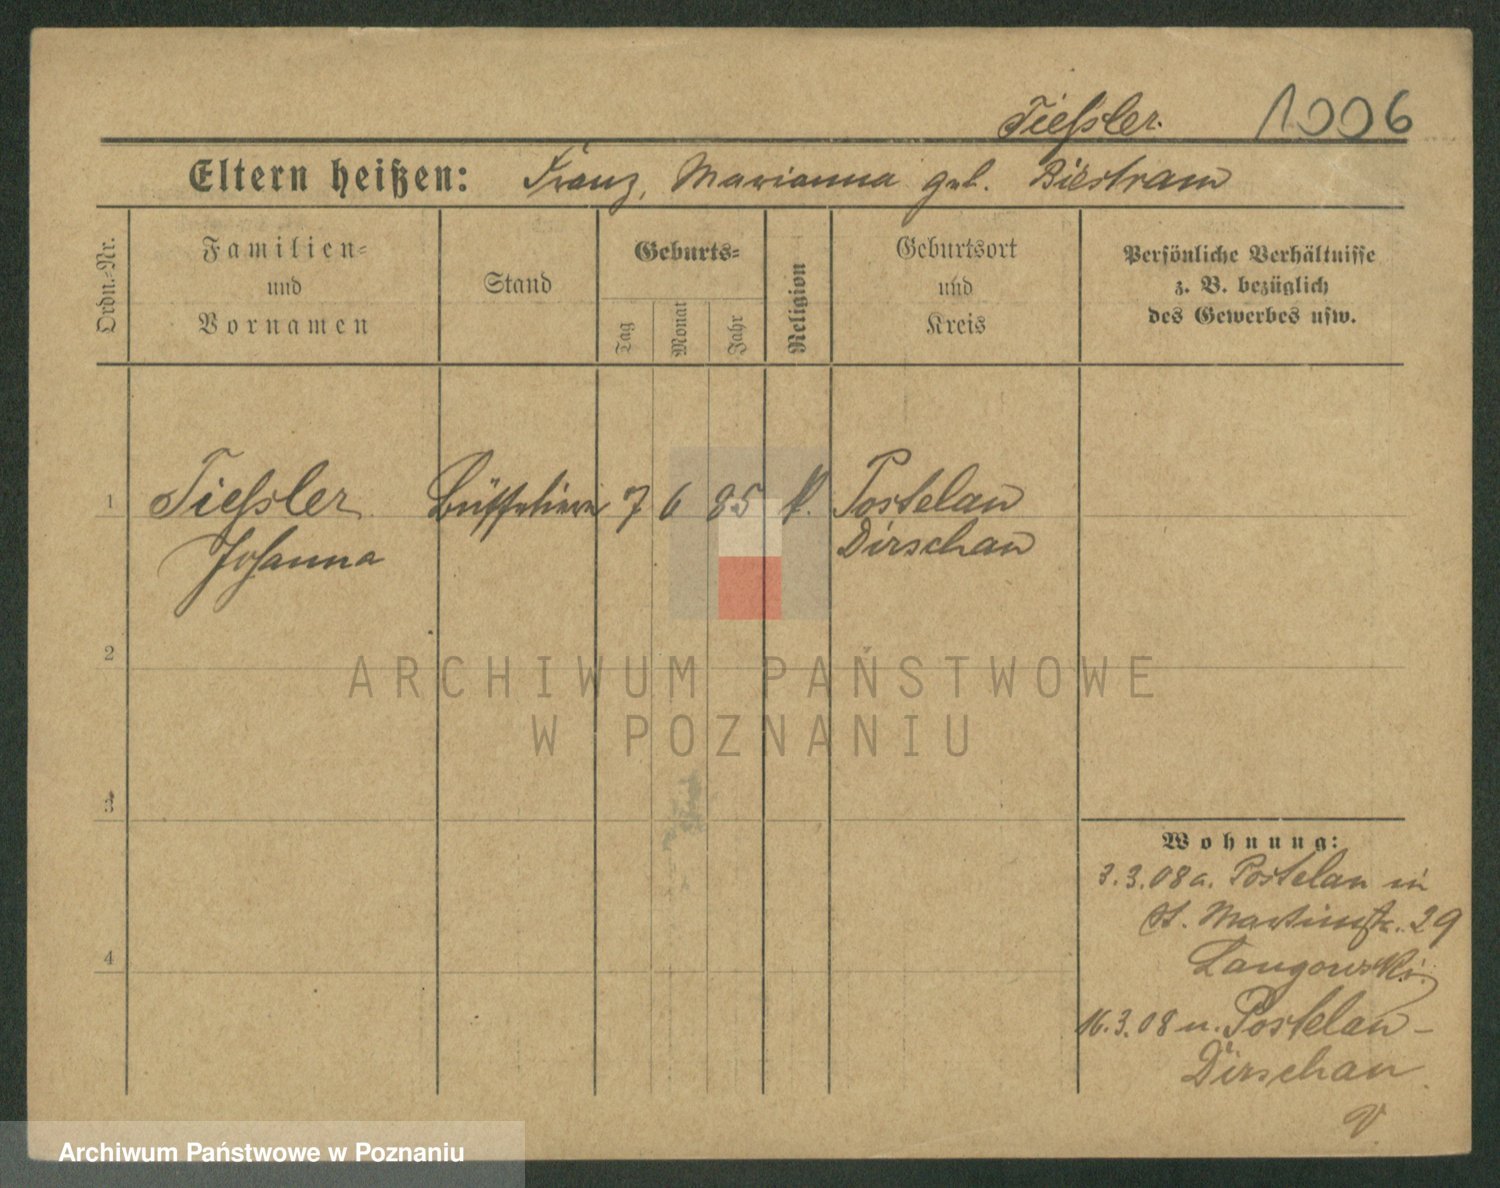 Tießler.
1006
Eltern heißen: Franz, Marianna geb. Biestram
Ordn.-Nr.
Familien-
und
Vornamen
Stand
Geburts-
Tag
Monat
Jahr
Religion
Geburtsort
und
Kreis
Persönliche Verhältnisse
z. B. bezüglich
des Gewerbes usw.
1 Tießler Büffetiere 7 6 85 k. Postelau
Johanna Dirschau
2
ARCHIWUM PAŃSTWOWE
W POZNANIU
3
4
Wohnung:
3.3.08 a. Postelau in
St. Martinstr. 29
Langowski
16.3.08 n. Postelau-
Dirschau
Archiwum Państwowe w Poznaniu